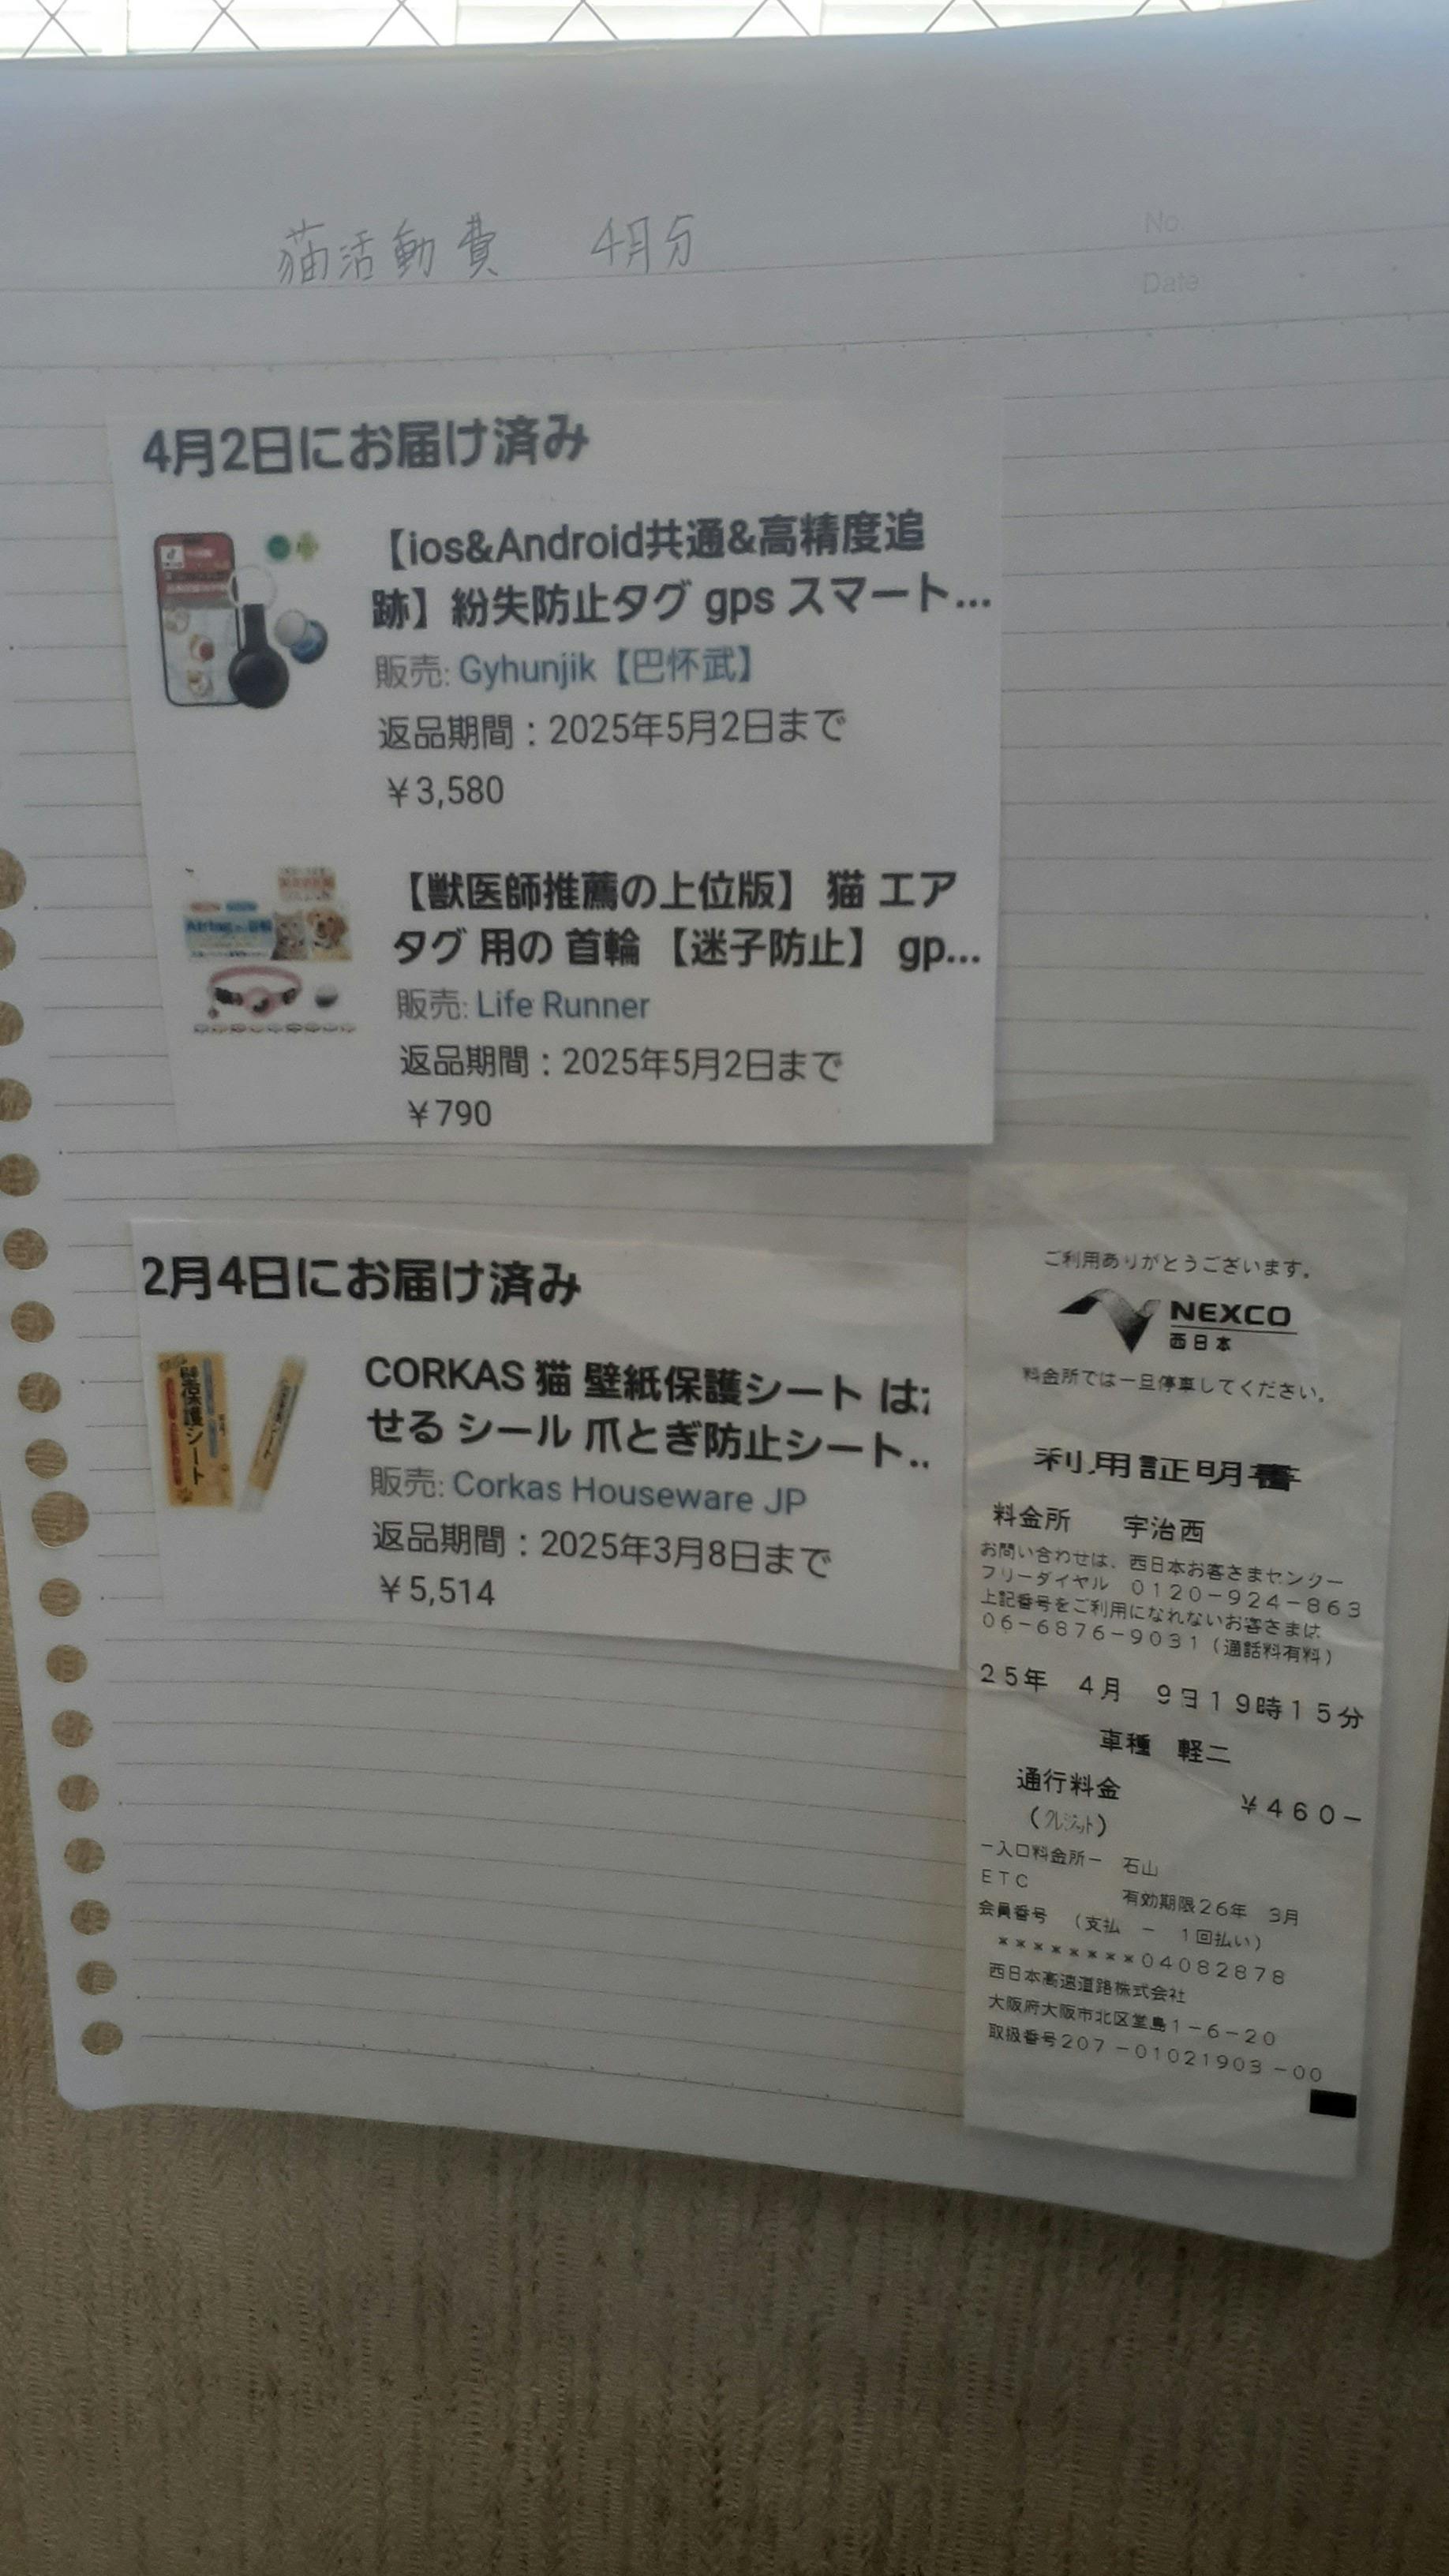 猫活動費 4月分
No.
Date
4月2日にお届け済み
【ios&Android共通&高精度追
跡】紛失防止タグ gps スマート...
販売: Gyhunjik【巴怀武】
返品期間：2025年5月2日まで
￥3,580
【獣医師推薦の上位版】 猫 エア
タグ 用の 首輪 【迷子防止】 gp...
販売: Life Runner
返品期間：2025年5月2日まで
￥790
2月4日にお届け済み
壁紙保護シート
CORKAS 猫 壁紙保護シート は
せる シール 爪とぎ防止シート..
販売: Corkas Houseware JP
返品期間：2025年3月8日まで
￥5,514
ご利用ありがとうございます。
NEXCO
西日本
料金所では一旦停車してください。
利用証明書
料金所 宇治西
お問い合わせは、西日本お客さまセンター
フリーダイヤル 0120-924-863
上記番号をご利用になれないお客さまは
06-6876-9031(通話料有料)
25年 4月 9日19時15分
車種 軽二
通行料金 ￥460-
(クレジット)
-入口料金所- 石山
ETC 有効期限26年 3月
会員番号 (支払 - 1回払い)
********04082878
西日本高速道路株式会社
大阪府大阪市北区堂島1-6-20
取扱番号207-01021903-00